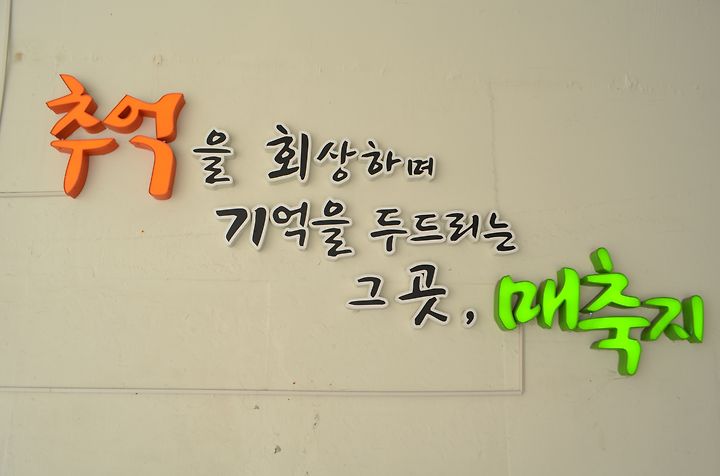 추억을 회상하며
기억을 두드리는
그 곳, 매축지